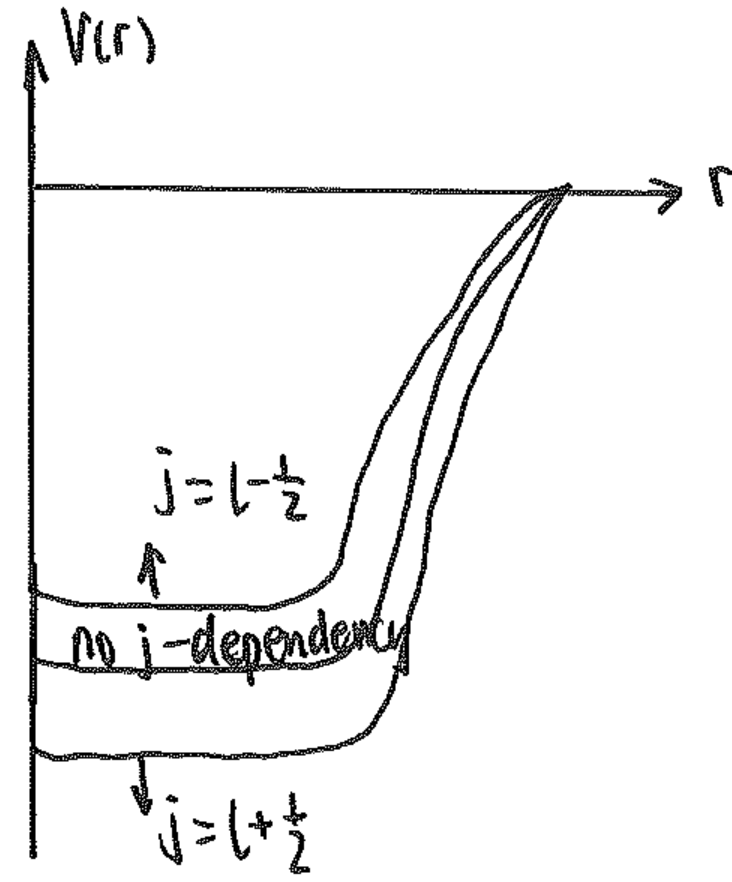 V(r)
r
j=l-1/2
no j-dependency
j=l+1/2